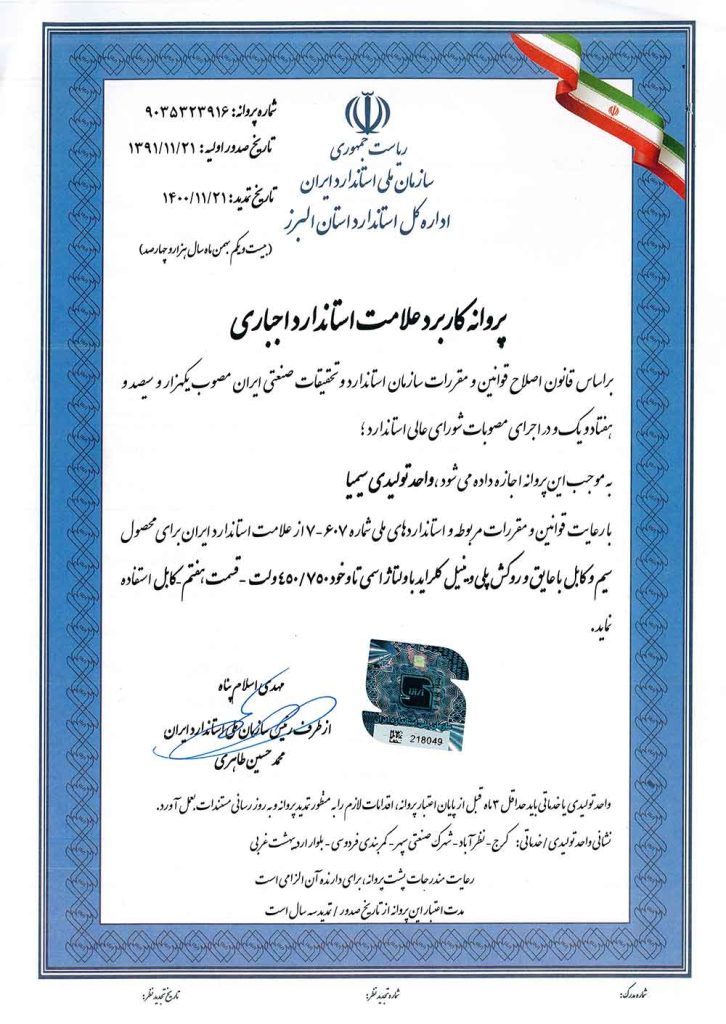 ریاست جمهوری
سازمان ملی استاندارد ایران
اداره کل استاندارد استان البرز
شماره پروانه: ۹۰۳۵۳۲۳۹۱۶
تاریخ صدور اولیه: ۱۳۹۱/۱۱/۲۱
تاریخ تمدید: ۱۴۰۰/۱۱/۲۱
(بیست و یکم بهمن ماه سال هزار و چهارصد)
پروانه کاربرد علامت استاندارد اجباری
براساس قانون اصلاح قوانین و مقررات سازمان استاندارد و تحقیقات صنعتی ایران مصوب یکهزار و سیصد و
هفتاد و یک و در اجرای مصوبات شورای عالی استاندارد؛
به موجب این پروانه اجازه داده می شود، واحد تولیدی سیمیا
با رعایت قوانین و مقررات مربوطه و استاندارد های ملی شماره ۶۰۷-۷ از علامت استاندارد ایران برای محصول
سیم و کابل با عایق و روکش پلی وینیل کلراید با ولتاژ اسمی تا و خود ۴۵۰/۷۵۰ ولت - قسمت هفتم - کابل استفاده
نماید.
مهدی اسلام پناه
از طرف رئیس سازمان ملی استاندارد ایران
محمد حسین طاهری
218049
واحد تولیدی یا خدماتی باید حداقل ۳ ماه قبل از پایان اعتبار پروانه، اقدامات لازم را به منظور تمدید پروانه و به روز رسانی مستندات، بعمل آورد.
نشانی واحد تولیدی / خدماتی: کرج - نظرآباد - شهرک صنعتی سپهر - کمربندی فردوسی - بلوار اردیبهشت غربی
رعایت مندرجات پشت پروانه، برای دارنده آن الزامی است
مدت اعتبار این پروانه از تاریخ صدور / تمدید سه سال است
شماره مدرک:
شماره تجدید نظر:
تاریخ تجدید نظر: